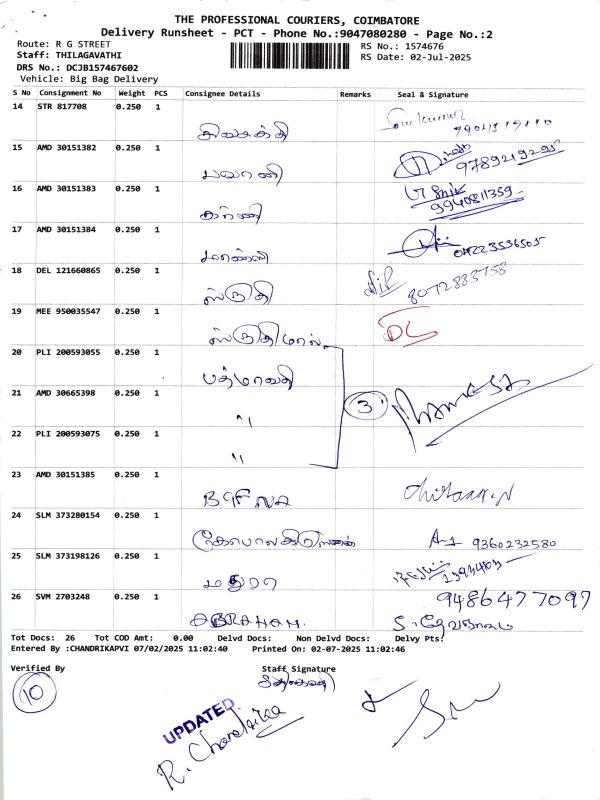 THE PROFESSIONAL COURIERS, COIMBATORE
Delivery Runsheet - PCT - Phone No.:9047080280 - Page No.:2
Route: R G STREET
RS No.: 1574676
Staff: THILAGAVATHI
RS Date: 02-Jul-2025
DRS No.: DCJB157467602
Vehicle: Big Bag Delivery
S No Consignment No Weight PCS Consignee Details Remarks Seal & Signature
14 STR 817708 0.250 1
சிவசக்தி
15 AMD 30151382 0.250 1
பவானி 9789219295
16 AMD 30151383 0.250 1
9940811359
17 AMD 30151384 0.250 1
04223536505
18 DEL 121660865 0.250 1
ஸ்ருதி 8072883758
19 MEE 950035547 0.250 1
ஸ்ருதிமால் DL
20 PLI 200593055 0.250 1
பத்மாவதி
21 AMD 30665398 0.250 1
" 3
22 PLI 200593075 0.250 1
"
23 AMD 30151385 0.250 1
24 SLM 373280154 0.250 1
கோபாலகிருஷ்ணன் A-1 9360232580
25 SLM 373198126 0.250 1
மதுரா
26 SVM 2703248 0.250 1
9486477097
ABRAHAM. S.
Tot Docs: 26 Tot COD Amt: 0.00 Delvd Docs: Non Delvd Docs: Delvy Pts:
Entered By :CHANDRIKAPVI 07/02/2025 11:02:40 Printed On: 02-07-2025 11:02:46
Verified By Staff Signature
10
UPDATED
R. Chandrikaa